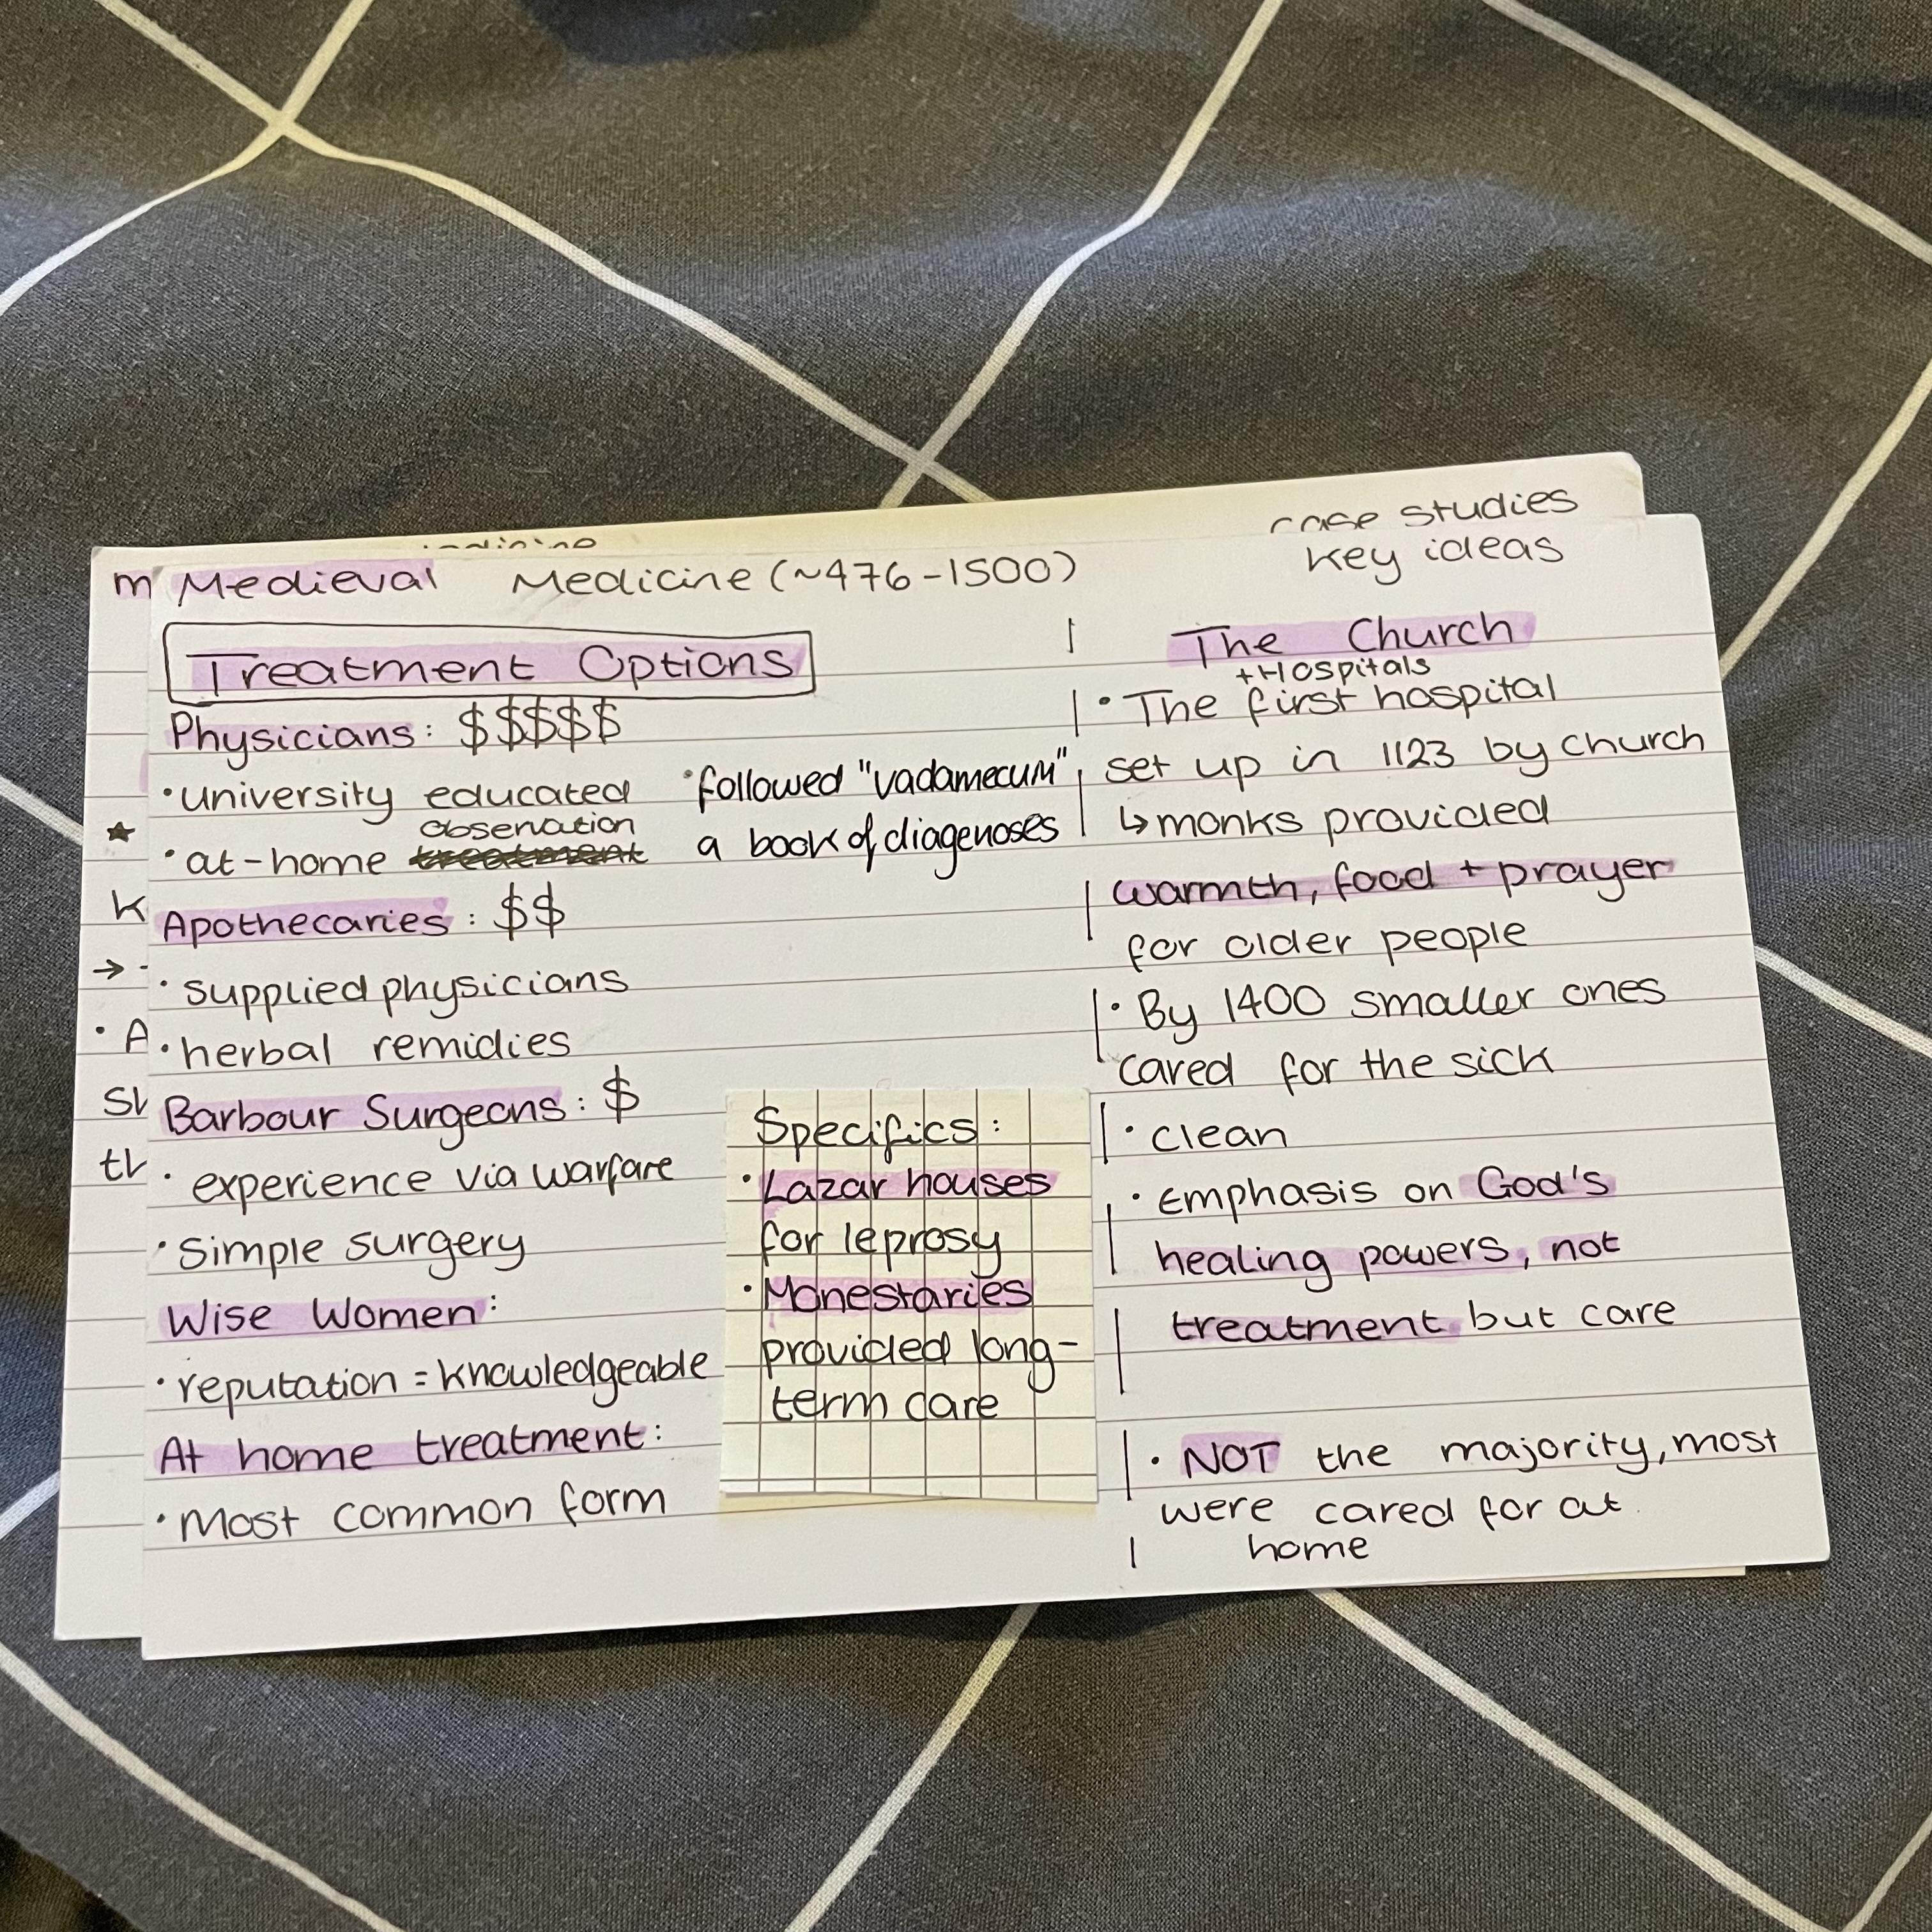 case studies
Medieval Medicine (~476-1500)
Key ideas
Treatment Options
Physicians: $$$$$
• university educated
observation
• at-home treatment
• followed "vadamecum"
a book of diagenoses
Apothecaries: $$
• supplied physicians
• herbal remidies
Barbour Surgeons: $
• experience via warfare
• simple surgery
Wise Women:
• reputation = knowledgeable
At home treatment:
• Most common form
Specifics:
• Lazar houses
for leprosy
• Monestaries
provided long-
term care
The Church
+Hospitals
• The first hospital
set up in 1123 by church
↳ monks provided
warmth, food + prayer
for older people
• By 1400 smaller ones
cared for the sick
• clean
• emphasis on God's
healing powers, not
treatment but care
• NOT the majority, most
were cared for at
home